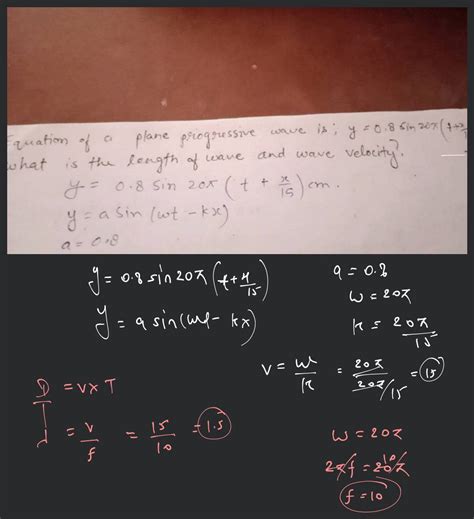 Equation of a plane progressive wave is; y = 0.8 sin 20π (t + x
what is the length of wave and wave velocity?
y = 0.8 sin 20π (t + x/15) cm.
y = a sin (wt - kx)
a = 0.8
y = 0.8 sin 20π (t + x/15)
y = a sin (wt - kx)
a = 0.8
w = 20π
k = 20π/15
v = w/k = 20π/20π/15 = 15
D = v x T
d = v/f = 15/10 = 1.5
w = 20π
2πf = 20π 10
f = 10